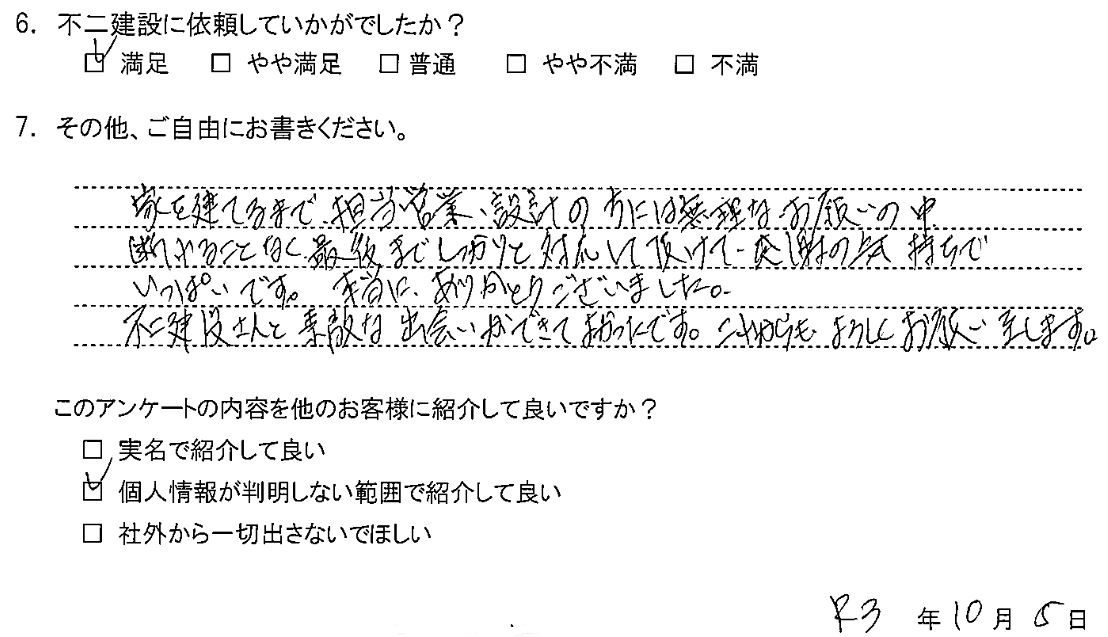 6. 不二建設に依頼していかがでしたか？
☑ 満足 □ やや満足 □ 普通 □ やや不満 □ 不満
7. その他、ご自由にお書きください。
家を建てるまで、担当営業、設計の方には無理なお願いの中
断わることなく最後までしっかりと対応して頂けて、感謝の気持ちで
いっぱいです。 本当に、ありがとうございました。
不二建設さんと素敵な出会いができてよかったです。これからもよろしくお願い致します。
このアンケートの内容を他のお客様に紹介して良いですか？
□ 実名で紹介して良い
☑ 個人情報が判明しない範囲で紹介して良い
□ 社外から一切出さないでほしい
R3 年 10 月 5 日